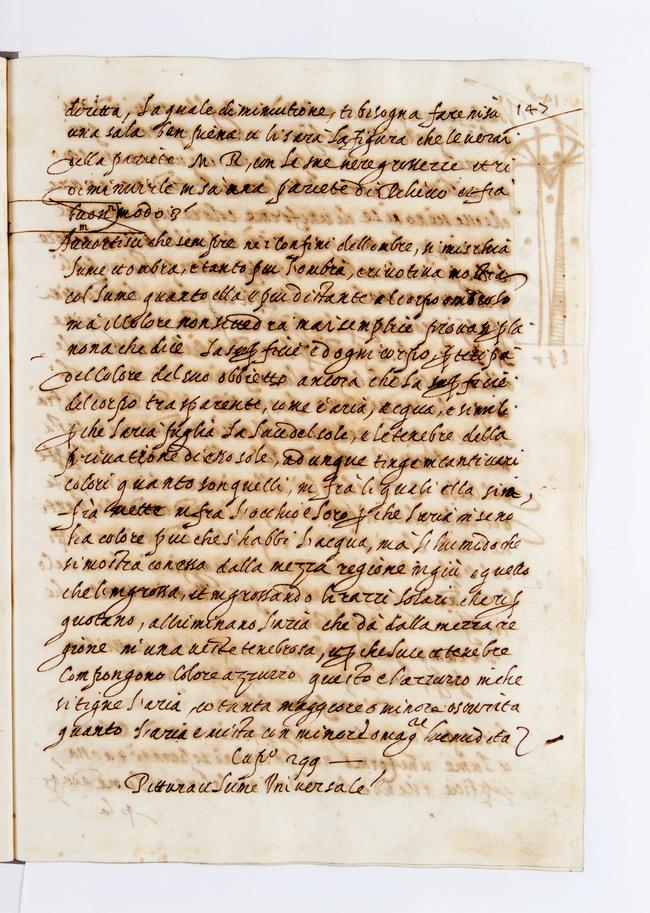 147
diritta, la quale diminutione, ti bisogna fare in su
una sala ben piena et li sarà la figura che leverai
della pariete M. R, con le sue vere grossezze et ri
diminuirle in su una pariete di
buon modo
Avvertisci che sempre ne i confini dell ombre, si mischia
lume et ombra, e tanto piu l'ombra,
col lume quanto ella è piu distante al corpo ombroso
ma il colore non si vedrà mai semplice provasi p la
nona che dice la supficie d'ogni corpo, partecipa
del colore del suo obbietto ancora che la supficie
del corpo trasparente, come è aria, acqua, e simili
p che l'aria piglia la luce del sole, e le tenebre della
privatione di esso sole, adunque tinge in tanti varii
colori quanto son quelli, in fra li quali ella s'in,
-fra mette in fra l'occhio e loro p che l'aria in se no
ha colore piu che s'habbi l'acqua, ma l'humido che
si mostra con essa dalla mezza regione in giu è quello
che l'ingrossa, et ingrossando li razzi solari che vi p
quotano, alluminano l'aria che da dalla mezza re
gione in una veste tenebrosa, et p che luce e tenebre
compongono colore azzurro questo è l'azzurro in che
si tigne l'aria, co tanta maggiore o minore oscurità
quanto l'aria è mista con minore o mag.re humidità
Cap.o 299
Pittura et lume Universale